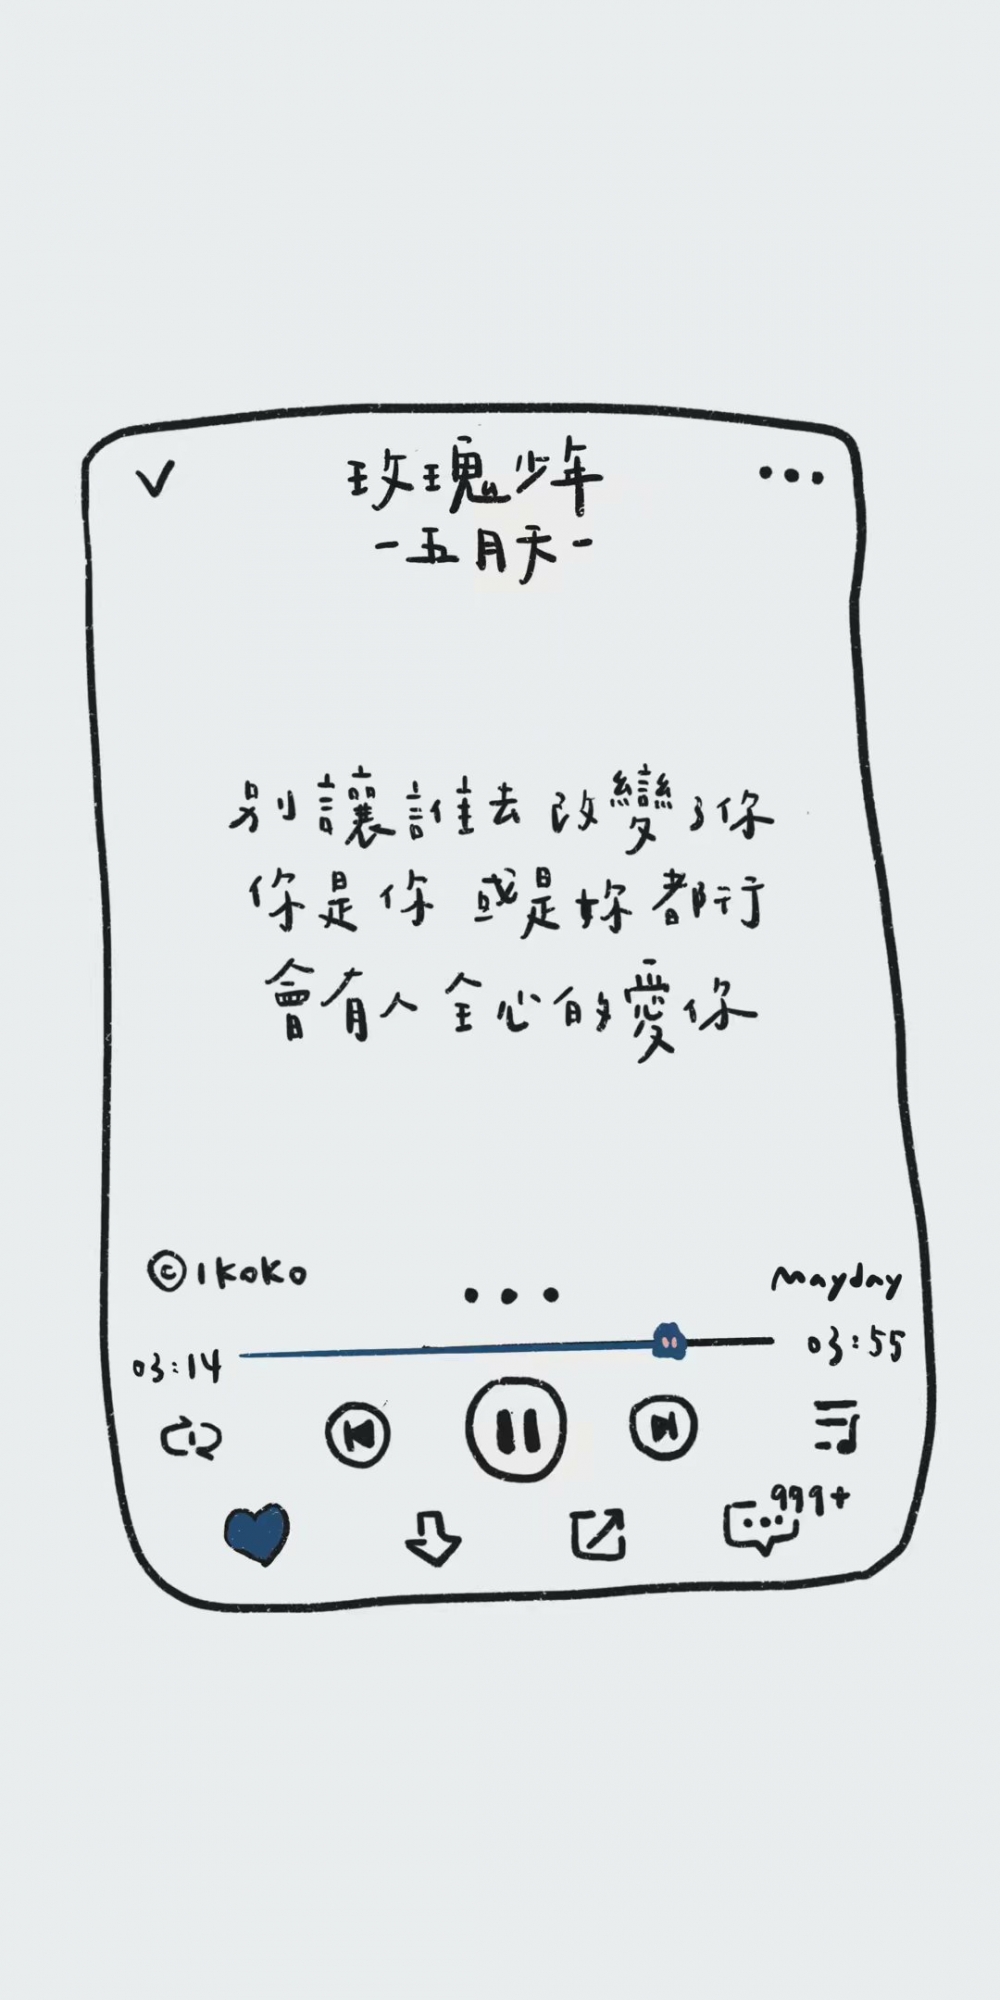 玫瑰少年
-五月天-
別讓誰去改變了你
你是你 或是妳都行
會有人全心的愛你
©IKOKO
Mayday
03:14
03:55
999+